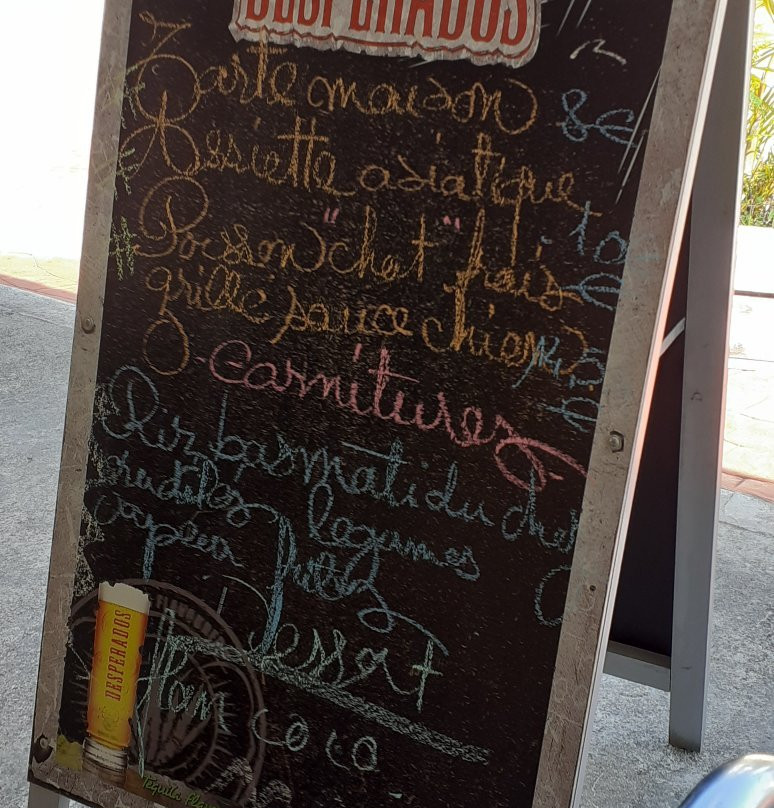 DESPERADOS
Tarte maison 8€
Assiette asiatique
Poisson "chat" frais
grillé sauce chien
Garnitures
Riz basmati du chef
crudités légumes
pays frites
Dessert
flan coco
DESPERADOS
Tequila